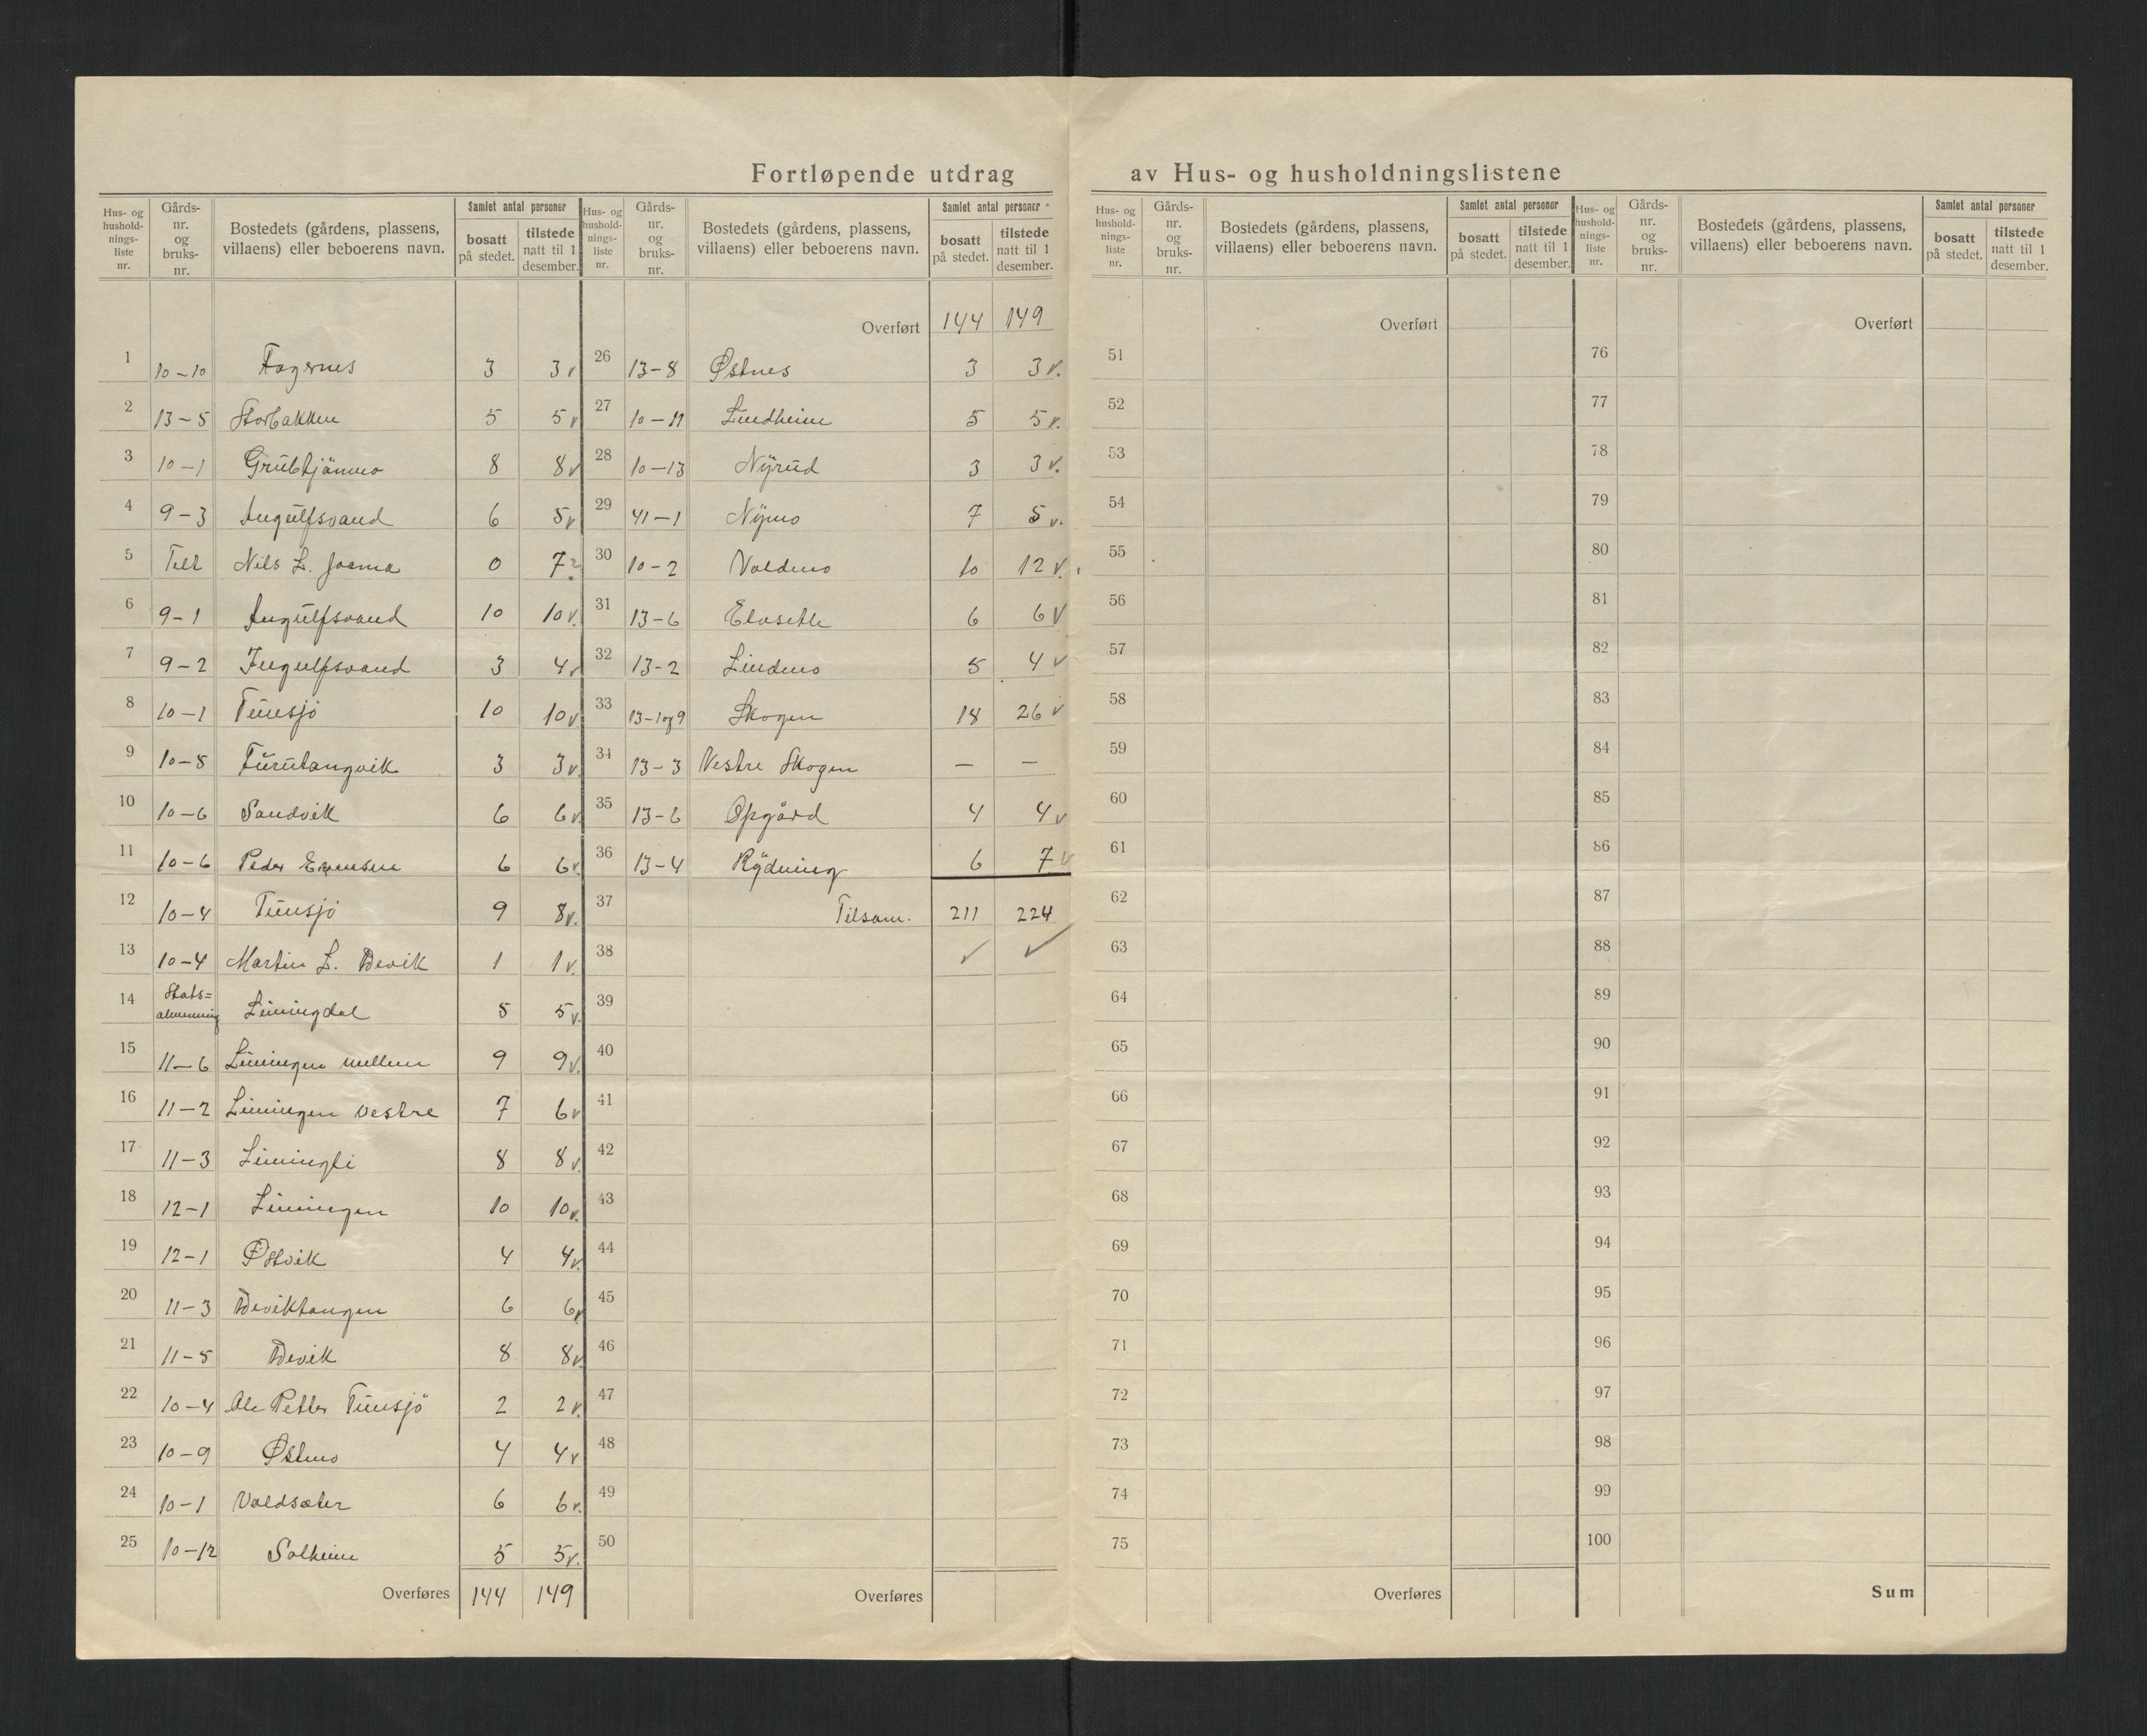 Fortløpende utdrag av Hus- og husholdningslistene
Hus- og hushold- nings- liste nr. Gårds- nr. og bruks- nr. Bostedets (gårdens, plassens, villaens) eller beboerens navn. Samlet antal personer bosatt på stedet. tilstede natt til 1 desember.
1 10-10 Fagernes 3 3 v
2 13-5 Storbakken 5 5 v
3 10-1 Grubtjänmo 8 8 v
4 9-3 Ingulfsvand 6 5 v
5 Telt Nils L. Joama 0 7 ?
6 9-1 Ingulfsvand 10 10 v.
7 9-2 Ingulfsvand 3 4 v
8 10-1 Tunsjö 10 10 v.
9 10-8 Furutangvik 3 3 v.
10 10-6 Sandvik 6 6 v
11 10-6 Peder 6 6 v.
12 10-4 Tunsjö 9 8 v.
13 10-4 Martin L. Devik 1 1 v.
14 Stats= almenning Limingdal 5 5 v.
15 11-6 Limingen mellem 9 9 v.
16 11-2 Limingen vestre 7 6 v
17 11-3 Limingli 8 8 v.
18 12-1 Limingen 10 10 v.
19 12-1 Østvik 4 4 v.
20 11-3 Deviktangen 6 6 v
21 11-5 Devik 8 8 v
22 10-4 Ole Petter Tunsjö 2 2 v.
23 10-9 Østmo 4 4 v
24 10-1 Valdsæter 6 6 v.
25 10-12 Solheim 5 5 v.
Overføres 144 149
Hus- og hushold- nings- liste nr. Gårds- nr. og bruks- nr. Bostedets (gårdens, plassens, villaens) eller beboerens navn. Samlet antal personer bosatt på stedet. tilstede natt til 1 desember.
Overført 144 149
26 13-8 Østnes 3 3 v.
27 10-11 Lindheim 5 5 v.
28 10-13 Nyrud 3 3 v.
29 41-1 Nymo 7 5 v.
30 10-2 Valdmo 10 12 v.
31 13-6 Elvseth 6 6 v
32 13-2 Lindmo 5 4 v
33 13-1og9 Skogen 18 26 v
34 13-3 Vestre Skogen — —
35 13-6 Opgård 4 4 v
36 13-4 Rydning 6 7 v
37 Tilsam. 211 224
38 ✓ ✓
39
40
41
42
43
44
45
46
47
48
49
50
Overføres
Hus- og hushold- nings- liste nr. Gårds- nr. og bruks- nr. Bostedets (gårdens, plassens, villaens) eller beboerens navn. Samlet antal personer bosatt på stedet. tilstede natt til 1 desember.
Overført
51
52
53
54
55
56
57
58
59
60
61
62
63
64
65
66
67
68
69
70
71
72
73
74
75
Overføres
Hus- og hushold- nings- liste nr. Gårds- nr. og bruks- nr. Bostedets (gårdens, plassens, villaens) eller beboerens navn. Samlet antal personer bosatt på stedet. tilstede natt til 1 desember.
Overført
76
77
78
79
80
81
82
83
84
85
86
87
88
89
90
91
92
93
94
95
96
97
98
99
100
Sum